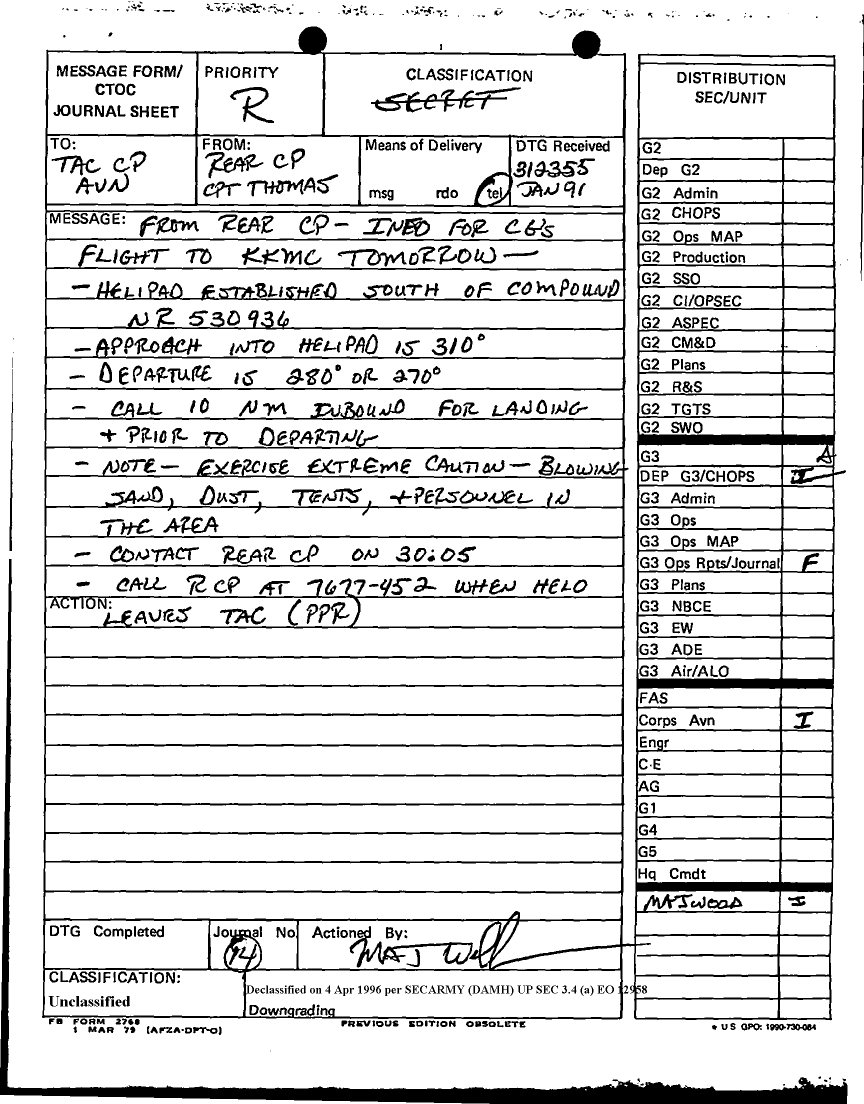 MESSAGE FORM/
CTOC
JOURNAL SHEET
PRIORITY
R
CLASSIFICATION
SECRET
TO:
TAC CP
AVN
FROM:
REAR CP
CPT THOMAS
Means of Delivery
msg rdo tel
DTG Received
312355
JAN 91
MESSAGE: FROM REAR CP - INFO FOR CG's
FLIGHT TO KKMC TOMORROW —
- HELIPAD ESTABLISHED SOUTH OF COMPOUND
NR 530936
- APPROACH INTO HELIPAD IS 310°
- DEPARTURE IS 280° OR 270°
- CALL 10 NM INBOUND FOR LANDING
+ PRIOR TO DEPARTING
- NOTE - EXERCISE EXTREME CAUTION - BLOWING
SAND, DUST, TENTS, + PERSONNEL IN
THE AREA
- CONTACT REAR CP ON 30:05
- CALL R CP AT 7677-452 WHEN HELO
ACTION: LEAVES TAC (PPR)
DTG Completed
Journal No.
94
Actioned By:
MAJ
CLASSIFICATION:
Unclassified
Declassified on 4 Apr 1996 per SECARMY (DAMH) UP SEC 3.4 (a) EO 12958
Downgrading
FB FORM 2768
1 MAR 79 (AFZA-DPT-O)
PREVIOUS EDITION OBSOLETE
DISTRIBUTION
SEC/UNIT
G2
Dep G2
G2 Admin
G2 CHOPS
G2 Ops MAP
G2 Production
G2 SSO
G2 CI/OPSEC
G2 ASPEC
G2 CM&D
G2 Plans
G2 R&S
G2 TGTS
G2 SWO
G3 A
DEP G3/CHOPS I
G3 Admin
G3 Ops
G3 Ops MAP
G3 Ops Rpts/Journal F
G3 Plans
G3 NBCE
G3 EW
G3 ADE
G3 Air/ALO
FAS
Corps Avn I
Engr
C-E
AG
G1
G4
G5
Hq Cmdt
MAJ WOOD I
* U S GPO: 1990-730-084